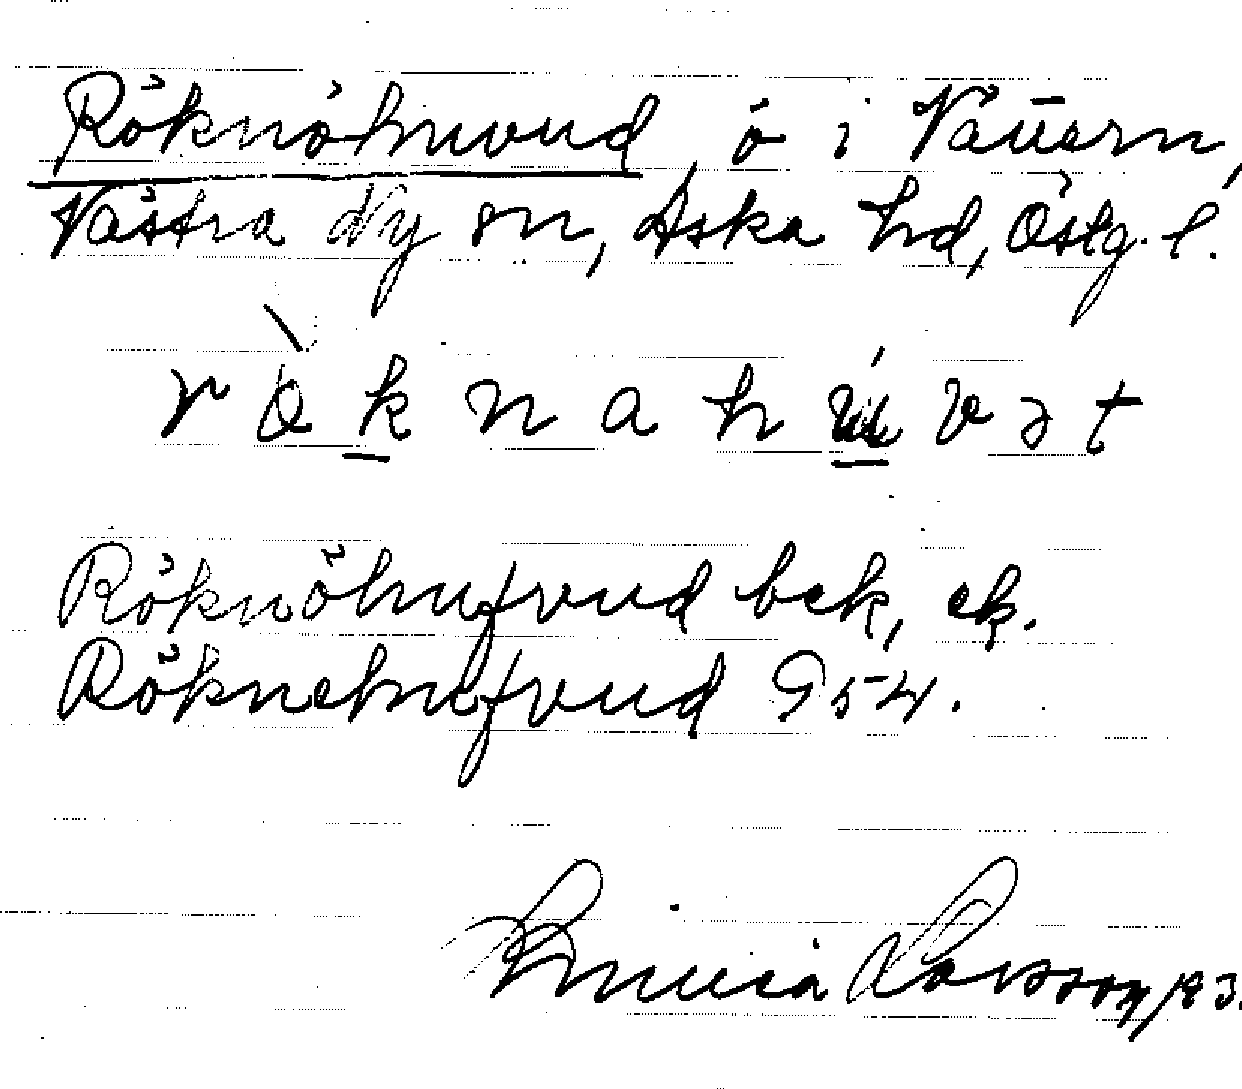 Röknöhuvud ö i Vättern,
Västra Ny sn, Aska hd, Östg. l.
r ö k n a h u v ə t
Röknöhufvud bek, ek.
Röknehufvud G 54.
Larsson